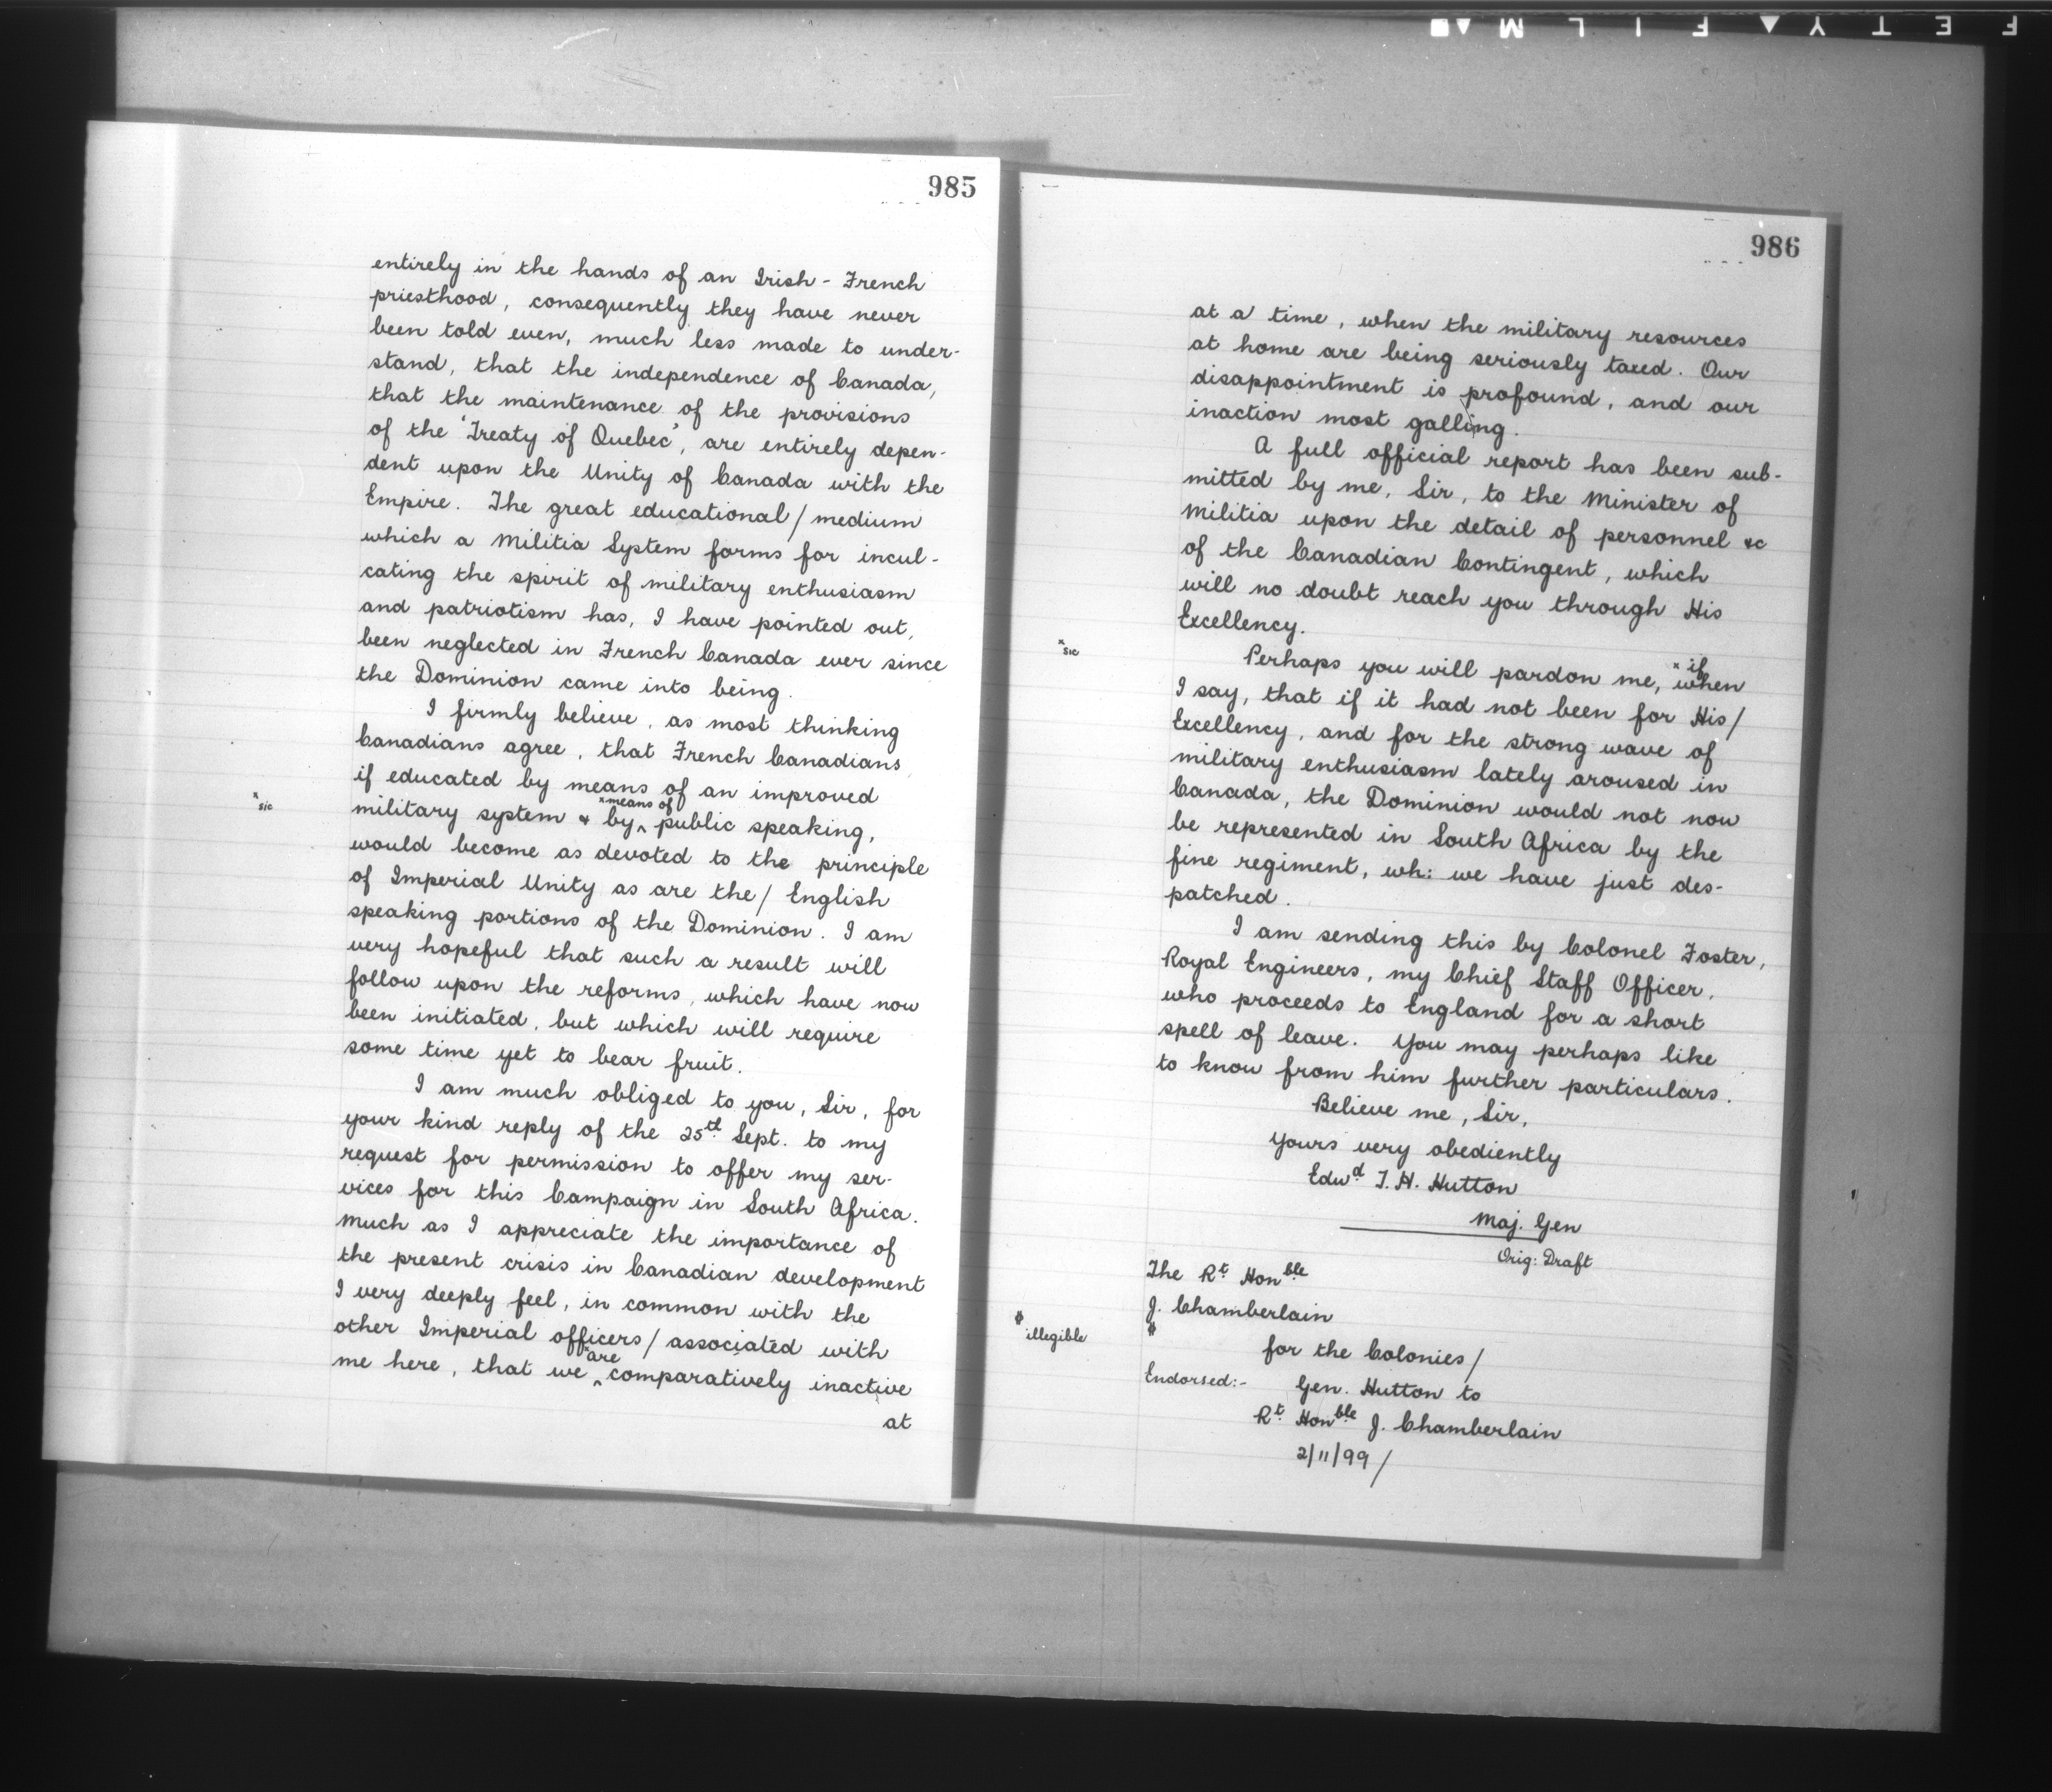 SAFETY▲FILM
985
entirely in the hands of an Irish - French
priesthood, consequently they have never
been told even, much less made to under-
stand, that the independence of Canada,
that the maintenance of the provisions
of the 'Treaty of Quebec', are entirely depen-
dent upon the Unity of Canada with the
Empire. The great educational/medium
which a Militia System forms for incul-
cating the spirit of military enthusiasm
and patriotism has, I have pointed out,
been neglected in French Canada ever since
the Dominion came into being.
I firmly believe, as most thinking
Canadians agree, that French Canadians
if educated by means of an improved
x means of
x sic
military system & by ^ public speaking,
would become as devoted to the principle
of Imperial Unity as are the/English
speaking portions of the Dominion. I am
very hopeful that such a result will
follow upon the reforms, which have now
been initiated, but which will require
some time yet to bear fruit.
I am much obliged to you, Sir, for
your kind reply of the 25th Sept. to my
request for permission to offer my ser-
vices for this Campaign in South Africa.
Much as I appreciate the importance of
the present crisis in Canadian development
I very deeply feel, in common with the
other Imperial officers/associated with
x are
me here, that we ^ comparatively inactive
at
986
at a time, when the military resources
at home are being seriously taxed. Our
disappointment is profound, and our
inaction most galling.
A full official report has been sub-
mitted by me, Sir, to the Minister of
Militia upon the detail of personnel &c
of the Canadian Contingent, which
will no doubt reach you through His
Excellency.
x sic
x if
Perhaps you will pardon me, when
I say, that if it had not been for His/
Excellency, and for the strong wave of
military enthusiasm lately aroused in
Canada, the Dominion would not now
be represented in South Africa by the
fine regiment, wh: we have just des-
patched.
I am sending this by Colonel Foster,
Royal Engineers, my Chief Staff Officer,
who proceeds to England for a short
spell of leave. You may perhaps like
to know from him further particulars.
Believe me, Sir,
Yours very obediently
Edwd T. H. Hutton
Maj. Gen
Orig: Draft
The Rt Honble
J. Chamberlain
# illegible
#
for the Colonies/
Endorsed:- Gen. Hutton to
Rt Honble J. Chamberlain
2/11/99/